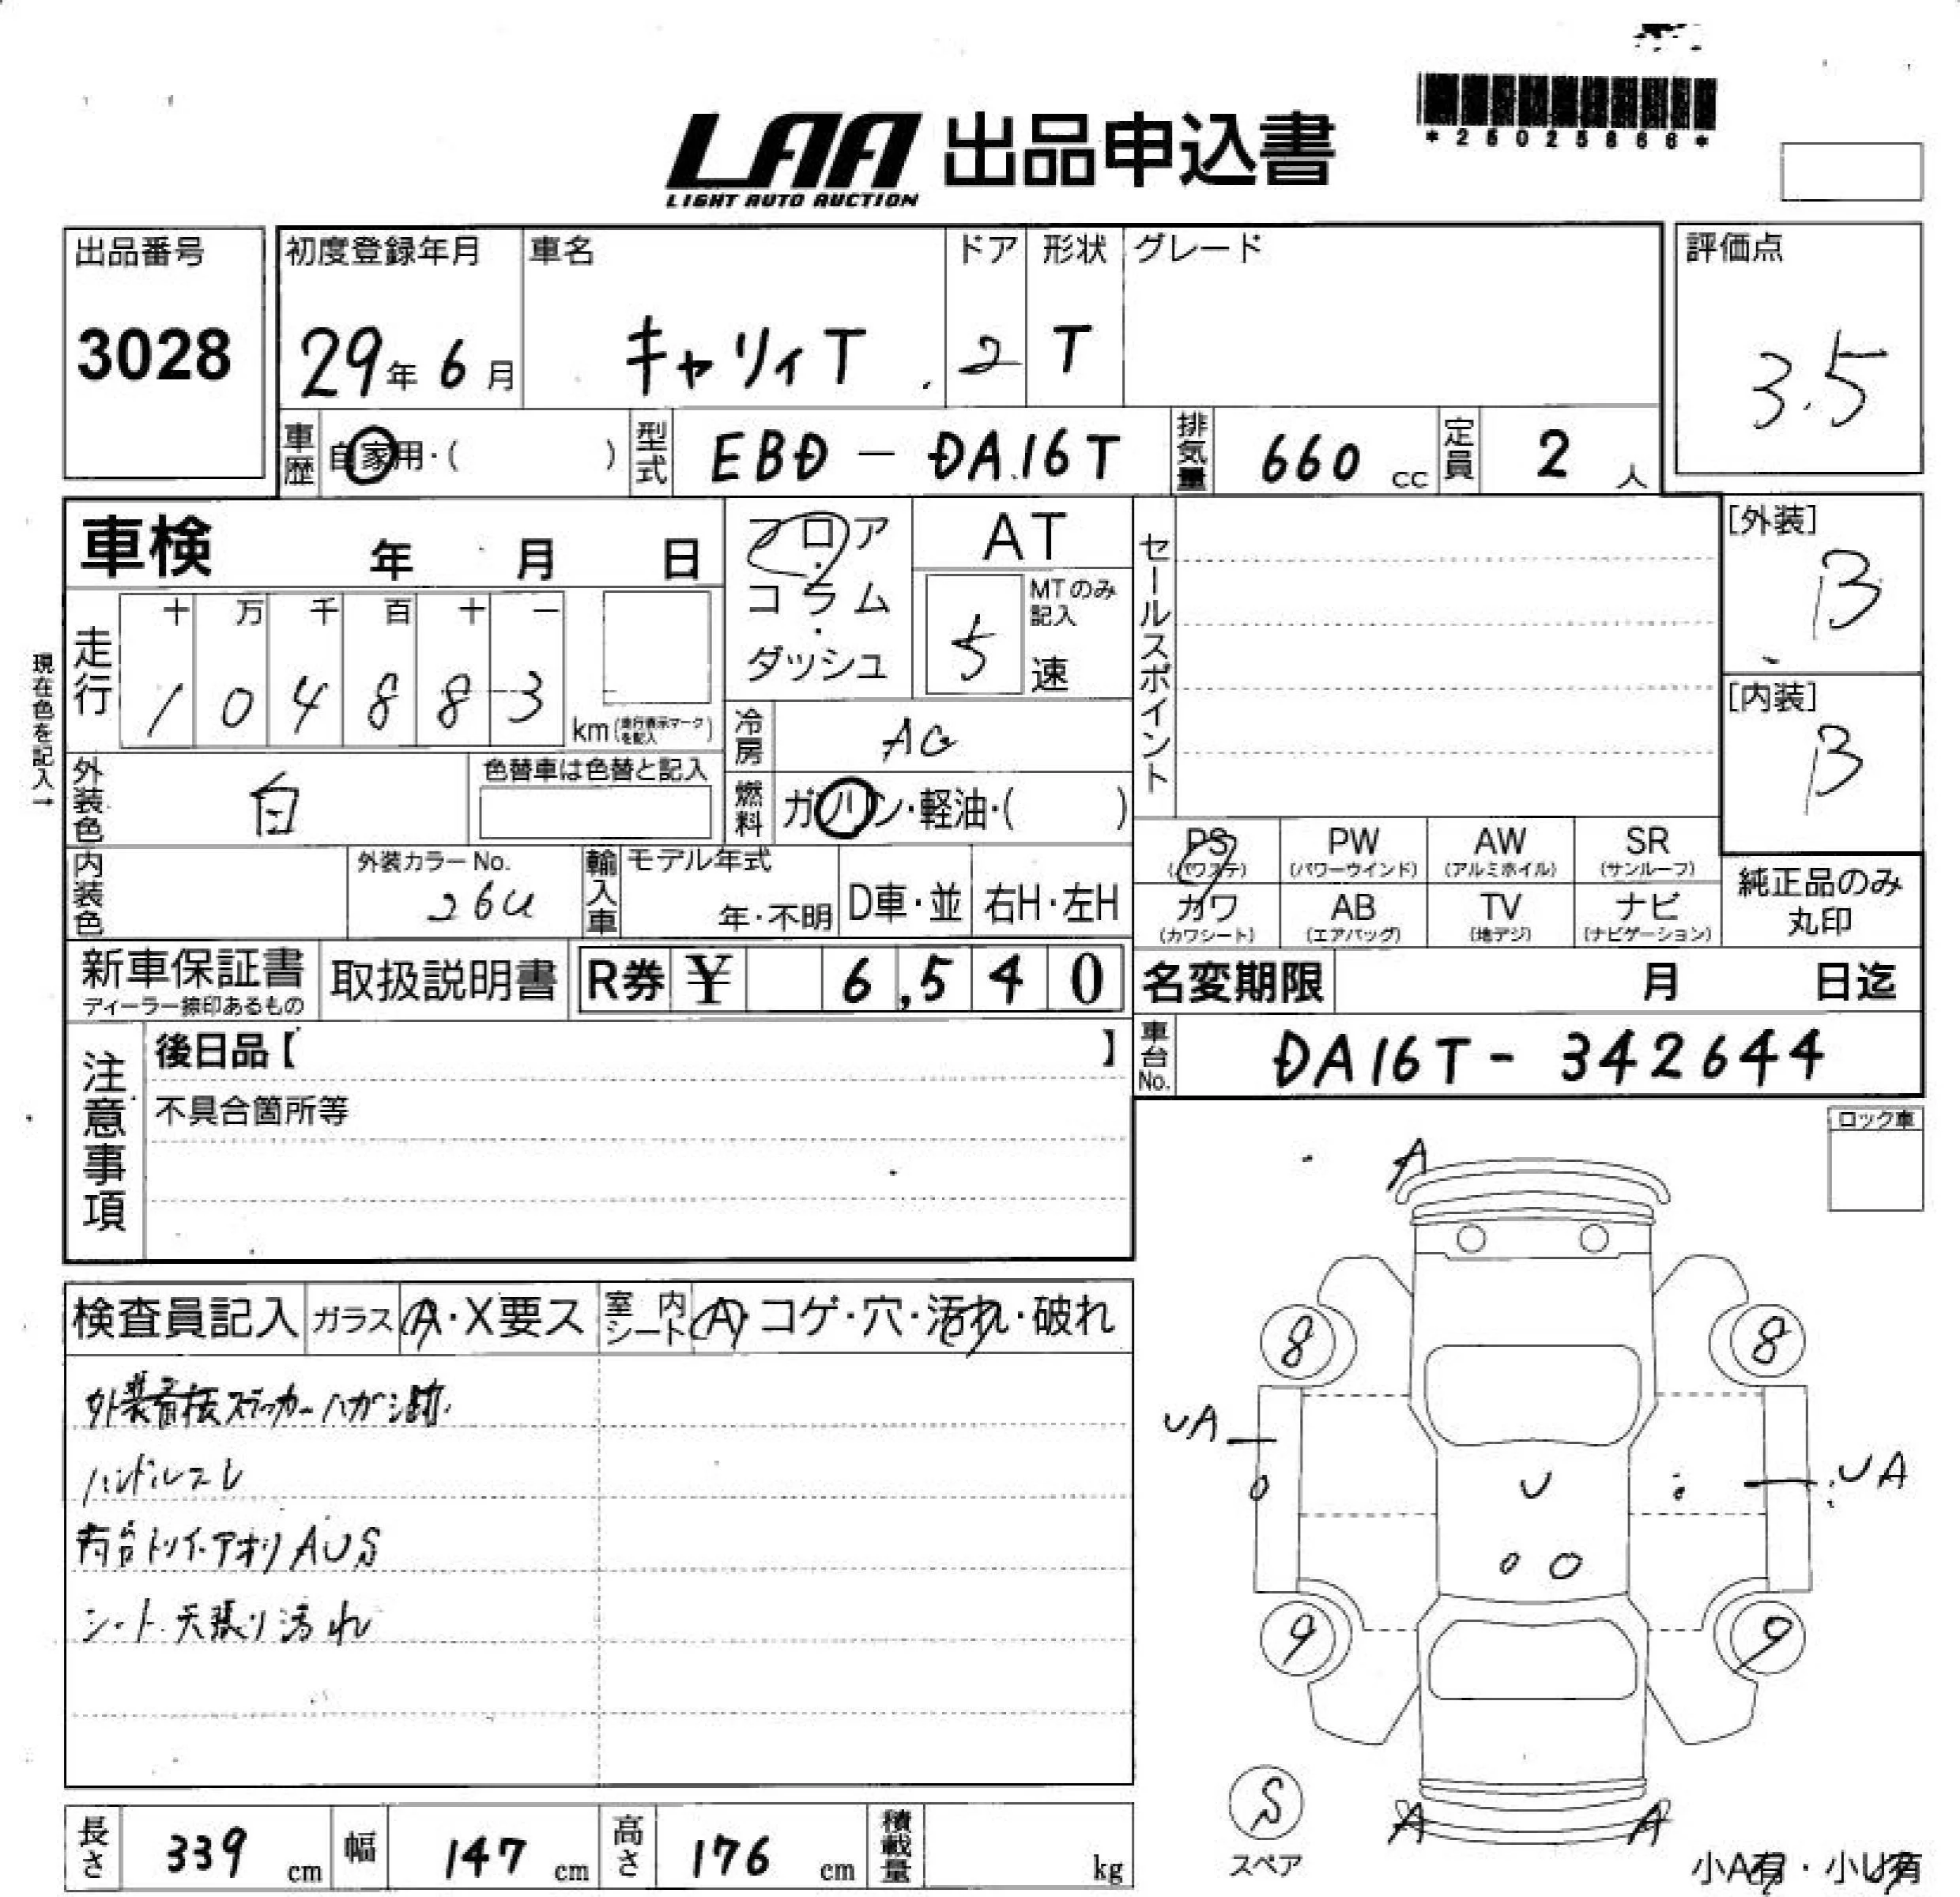 *25025866*
LAA 出品申込書
LIGHT AUTO AUCTION
出品番号 初度登録年月 車名 ドア 形状 グレード 評価点
3028 29年 6月 キャリィT 2 T 3.5
車歴 自家用・( ) 型式 EBD-DA16T 排気量 660 cc 定員 2 人
車検 年 月 日 フロア・コラム・ダッシュ AT 5 速 MTのみ記入 セールスポイント [外装] B
現在色を記入→
走行 十 万 千 百 十 一
1 0 4 8 8 3 km (走行表示マークを記入)
冷房 AC [内装] B
外装色 白 色替車は色替と記入 燃料 ガソリン・軽油・( )
PS (パワステ) PW (パワーウインド) AW (アルミホイル) SR (サンルーフ)
カワ (カワシート) AB (エアバッグ) TV (地デジ) ナビ (ナビゲーション) 純正品のみ丸印
内装色 外装カラーNo. 26U 輸入車 モデル年式 年・不明 D車・並 右H・左H
新車保証書 ディーラー捺印あるもの 取扱説明書 R券 ¥ 6,540 名変期限 月 日迄
注意事項 後日品【 】 車台No. DA16T-342644
不具合箇所等 ロック車
A
検査員記入 ガラス A・X要ス 室内シート A・コゲ・穴・汚れ・破れ
外装看板ステッカーハガシ跡.
ハンドルスレ
荷台トリイ・アオリ AUS
シート.天張り汚れ
8 8
UA U UA
9 9
S
スペア
A A
長さ 339 cm 幅 147 cm 高さ 176 cm 積載量 kg
小A有・小U有